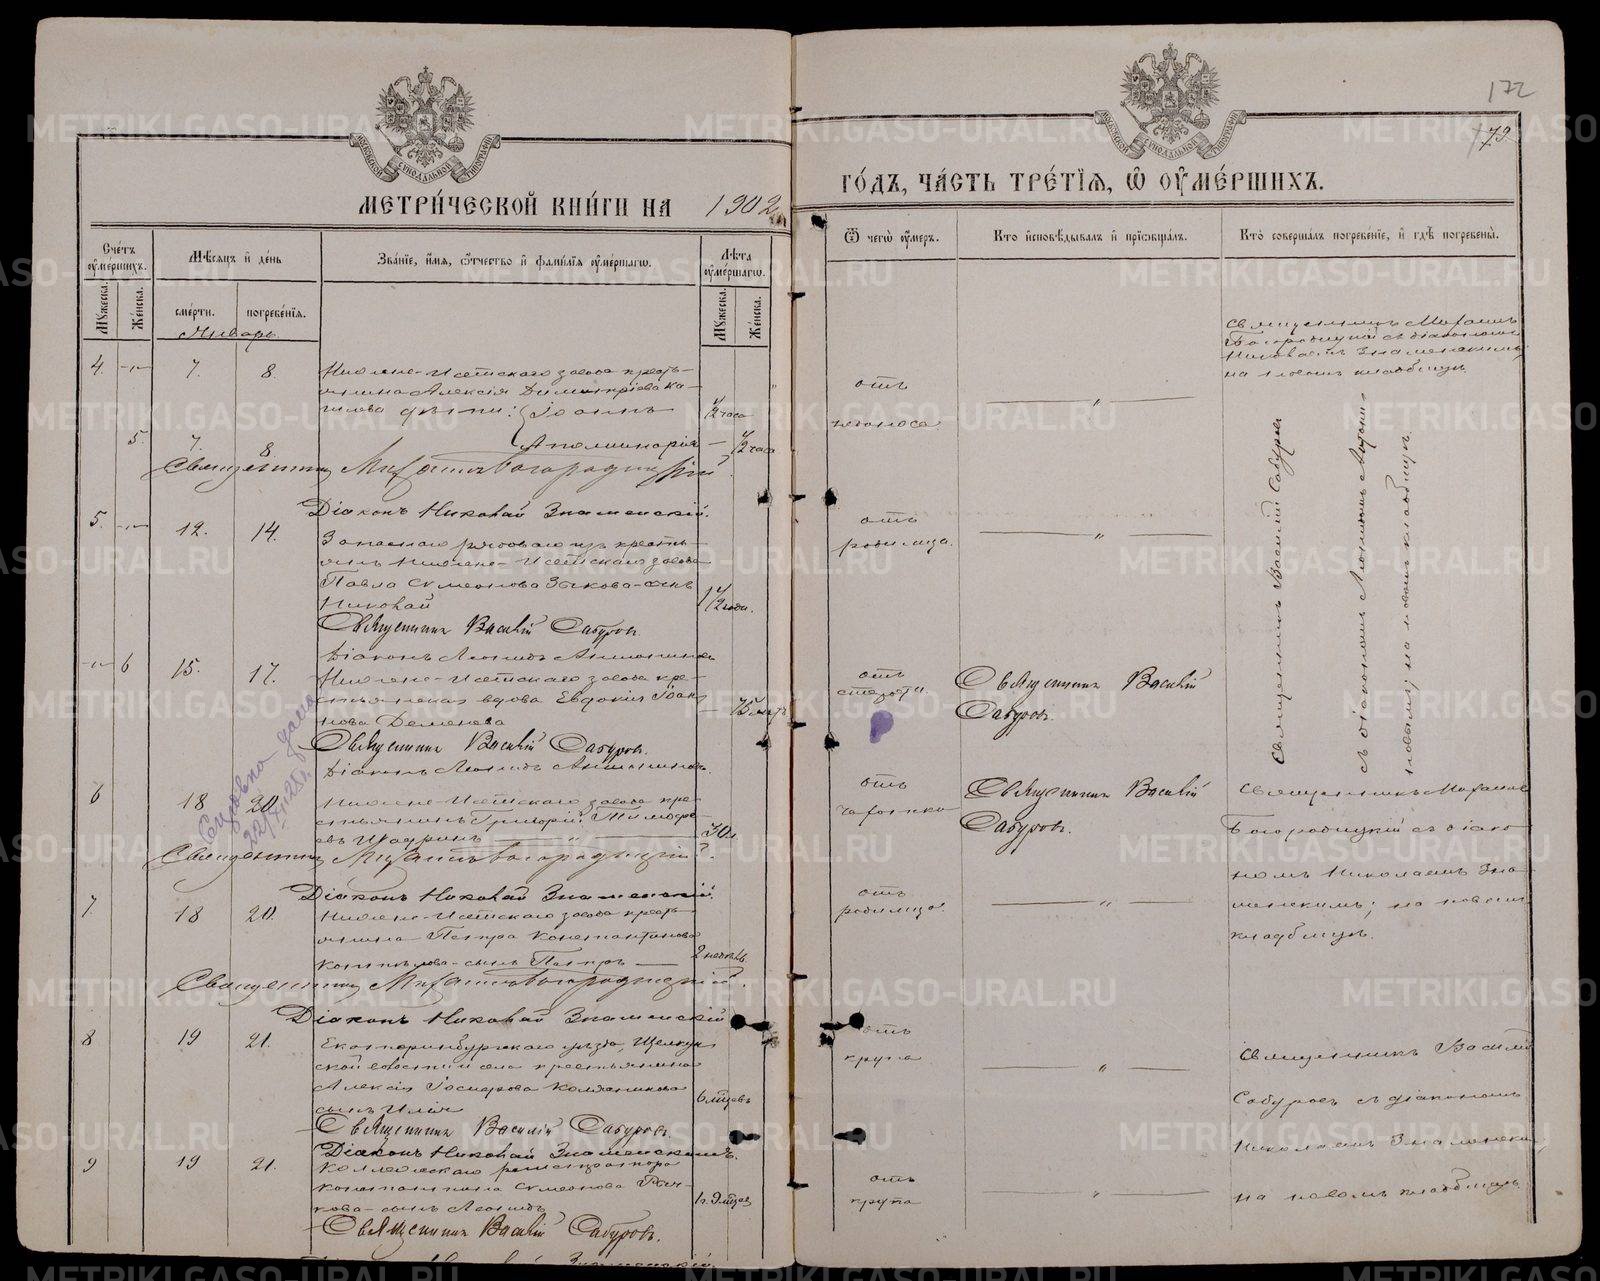 172
МОСКОВСКОЙ СѴНОДАЛЬНОЙ ТИПОГРАФІИ
МЕТРИ́ЧЕСКОЙ КНИ́ГИ НА 1902
ГО́ДЪ, ЧА́СТЬ ТРЕ́ТІѦ, Ѿ ОУМЕ́РШИХЪ.
Сче́тъ оуме́ршихъ.
Му́жеска.
Же́нска.
Мѣ́сѧцъ и де́нь
сме́рти.
погребе́нїѧ.
Зва́нїе, и́мѧ, о́тчество и фами́лїѧ оуме́ршагѡ.
Лѣ́та оуме́ршагѡ.
Му́жеска.
Же́нска.
Ѿ чегѡ̀ оу́меръ.
Кто̀ исповѣ́дывалъ и прїѡбща́лъ.
Кто̀ соверша́лъ погребе́нїе, и гдѣ̀ погребены̀.
Январь
4. 7. 8.
Нижне-Исетскаго завода кресть-
янина Алексія Димитріева Ка-
дѣти: Іоаннъ
1/2 часа
отъ
Священникъ Михаилъ
Богородицкій съ діакономъ
Николаемъ Знаменскимъ,
на новомъ кладбищѣ
5. 7. 8
Аполинарія
1/2 часа
Священникъ Михаилъ Богородицкій.
Діаконъ Николай Знаменскій.
5. 12. 14.
Запаснаго рядоваго изъ кресть-
янъ Нижне-Исетскаго завода
Павла Симеонова Зыкова-сынъ
Николай
1 1/2 года.
отъ
родимца.
Священникъ Василій Сабуровъ
съ діакономъ Леонидомъ
новомъ кладбищѣ
Священникъ Василій Сабуровъ.
Діаконъ Леонидъ
6 15. 17.
Нижне-Исетскаго завода кре-
стьянская вдова Евдокія Іоан-
нова Деменева
75 лѣтъ
отъ
старости.
Священникъ Василій
Сабуровъ.
Священникъ Василій Сабуровъ.
Діаконъ Леонидъ
6 18 20.
Нижне-Исетскаго завода кре-
стьянинъ Григорій Тимофе-
евъ Шадринъ
30 л.
отъ
чахотки
Священникъ Василій
Сабуровъ.
Священникъ Михаилъ
Богородицкій съ діако-
номъ Николаемъ Зна-
менскимъ; на новомъ
кладбищѣ.
Священникъ Михаилъ Богородицкій.
Діаконъ Николай Знаменскій.
7 18 20.
Нижне-Исетскаго завода кресть-
янина Петра Константинова
сынъ Петръ
2 недѣль
отъ
родимца.
Священникъ Михаилъ Богородицкій.
Діаконъ Николай Знаменскій
8 19 21.
Екатеринбургскаго уѣзда, Щелкун-
ской волости и села крестьянина
Алексія
сынъ Илія
6 мѣсцевъ
отъ
крупа
Священникъ Василій
Сабуровъ съ діакономъ
Николаемъ Знаменскимъ;
на новомъ кладбищѣ.
Священникъ Василій Сабуровъ.
Діаконъ Николай Знаменскій.
9 19 21.
Коллежскаго регистратора
Константина Симеонова
сынъ Леонидъ
1 г. 9 мѣсцев
отъ
крупа
Священникъ Василій Сабуровъ.
METRIKI.GASO-URAL.RU